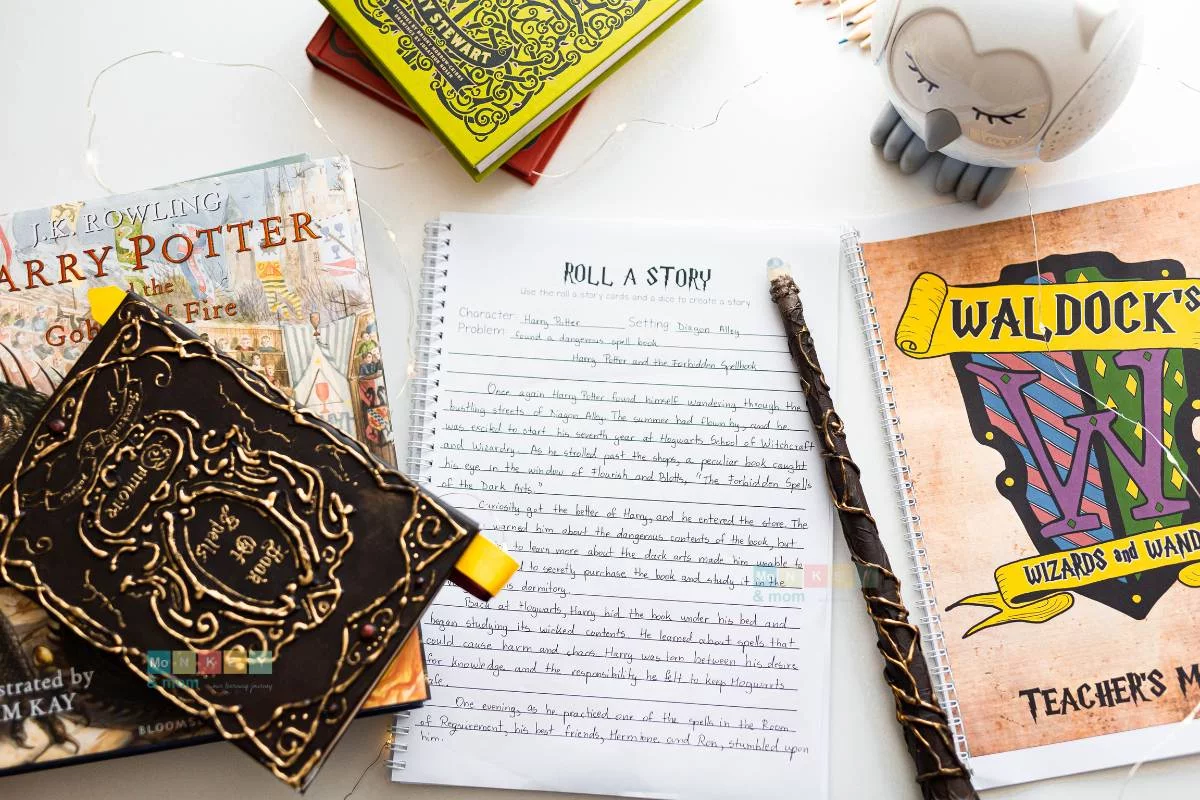 RY STEWART
J.K. ROWLING
ARRY POTTER
the
Gob of Fire
Book
Of
Spells
strated by
M KAY
BLOOMS
MO-N-K-E-Y
& mom
our learning journey
ROLL A STORY
Use the roll a story cards and a dice to create a story
Character: Harry Potter Setting Diagon Alley
Problem: found a dangerous spell book
Harry Potter and the Forbidden Spellbook
Once again Harry Potter found himself wandering through the
bustling streets of Diagon Alley. The summer had flown by, and he
was excited to start his seventh year at Hogwarts School of Witchcraft
and Wizardry. As he strolled past the shops, a peculiar book caught
his eye in the window of Flourish and Blotts, "The Forbidden Spells
of the Dark Arts."
Curiosity got the better of Harry, and he entered the store. The
warned him about the dangerous contents of the book, but
to learn more about the dark arts made him unable to
d to secretly purchase the book and study it in the
is dormitory.
Back at Hogwarts, Harry hid the book under his bed and
began studying its wicked contents. He learned about spells that
could cause harm and chaos. Harry was torn between his desire
for knowledge and the responsibility he felt to keep Hogwarts
afe.
One evening, as he practiced one of the spells in the Room
of Requirement, his best friends, Hermione and Ron, stumbled upon
him.
MO-N-K
& mom
WALDOCK'S
W
WIZARDS and WAND
TEACHER'S M
love